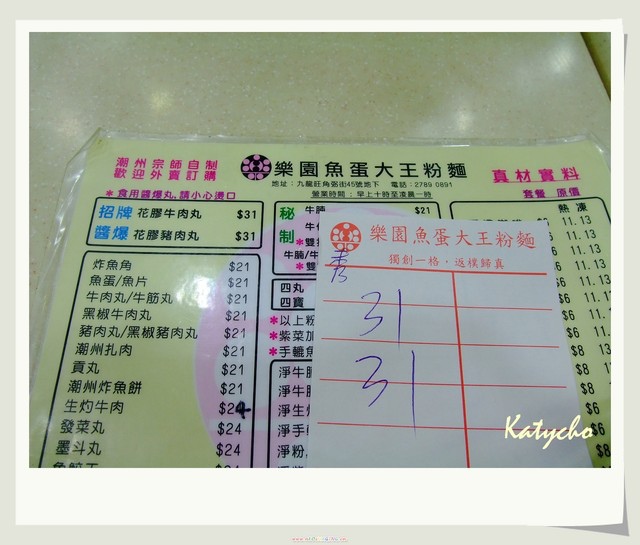 潮州宗師自制
歡迎外賣訂購
樂園魚蛋大王粉麵
地址：九龍旺角弼街45號地下 電話：2789 0891
營業時間：早上十時至凌晨一時
真材實料
＊食用醬爆丸,請小心燙口
套餐 原價
招牌 花膠牛肉丸 $31
醬爆 花膠豬肉丸 $31
秘
制
牛腩 $21
＊雙
牛腩/牛
＊雙
熱 凍
11. 13
炸魚角 $21
魚蛋/魚片 $21
牛肉丸/牛筋丸 $21
黑椒牛肉丸 $21
豬肉丸/黑椒豬肉丸 $21
潮州扎肉 $21
貢丸 $21
潮州炸魚餅 $21
生灼牛肉 $24
發菜丸 $24
墨斗丸 $24
四丸
四寶
＊以上粉
＊紫菜加
＊手轆魚
淨牛腩
淨牛
淨生
淨手
淨粉
樂園魚蛋大王粉麵
獨創一格，返樸歸真
31
31
$6 11. 13
$6
$8 13
$8
$6
$6
$8
Katycho